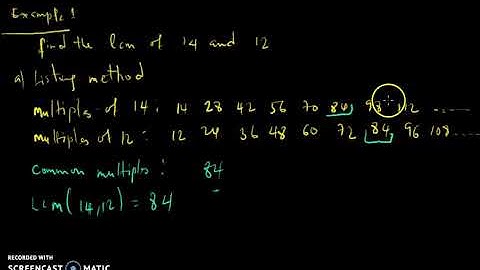 Example 1
find the lcm of 14 and 12
a) Listing method
multiples of 14: 14 28 42 56 70 84 98 112 ......
multiples of 12: 12 24 36 48 60 72 84 96 108 .....
Common multiples: 84
Lcm(14,12) = 84
RECORDED WITH
SCREENCAST MATIC